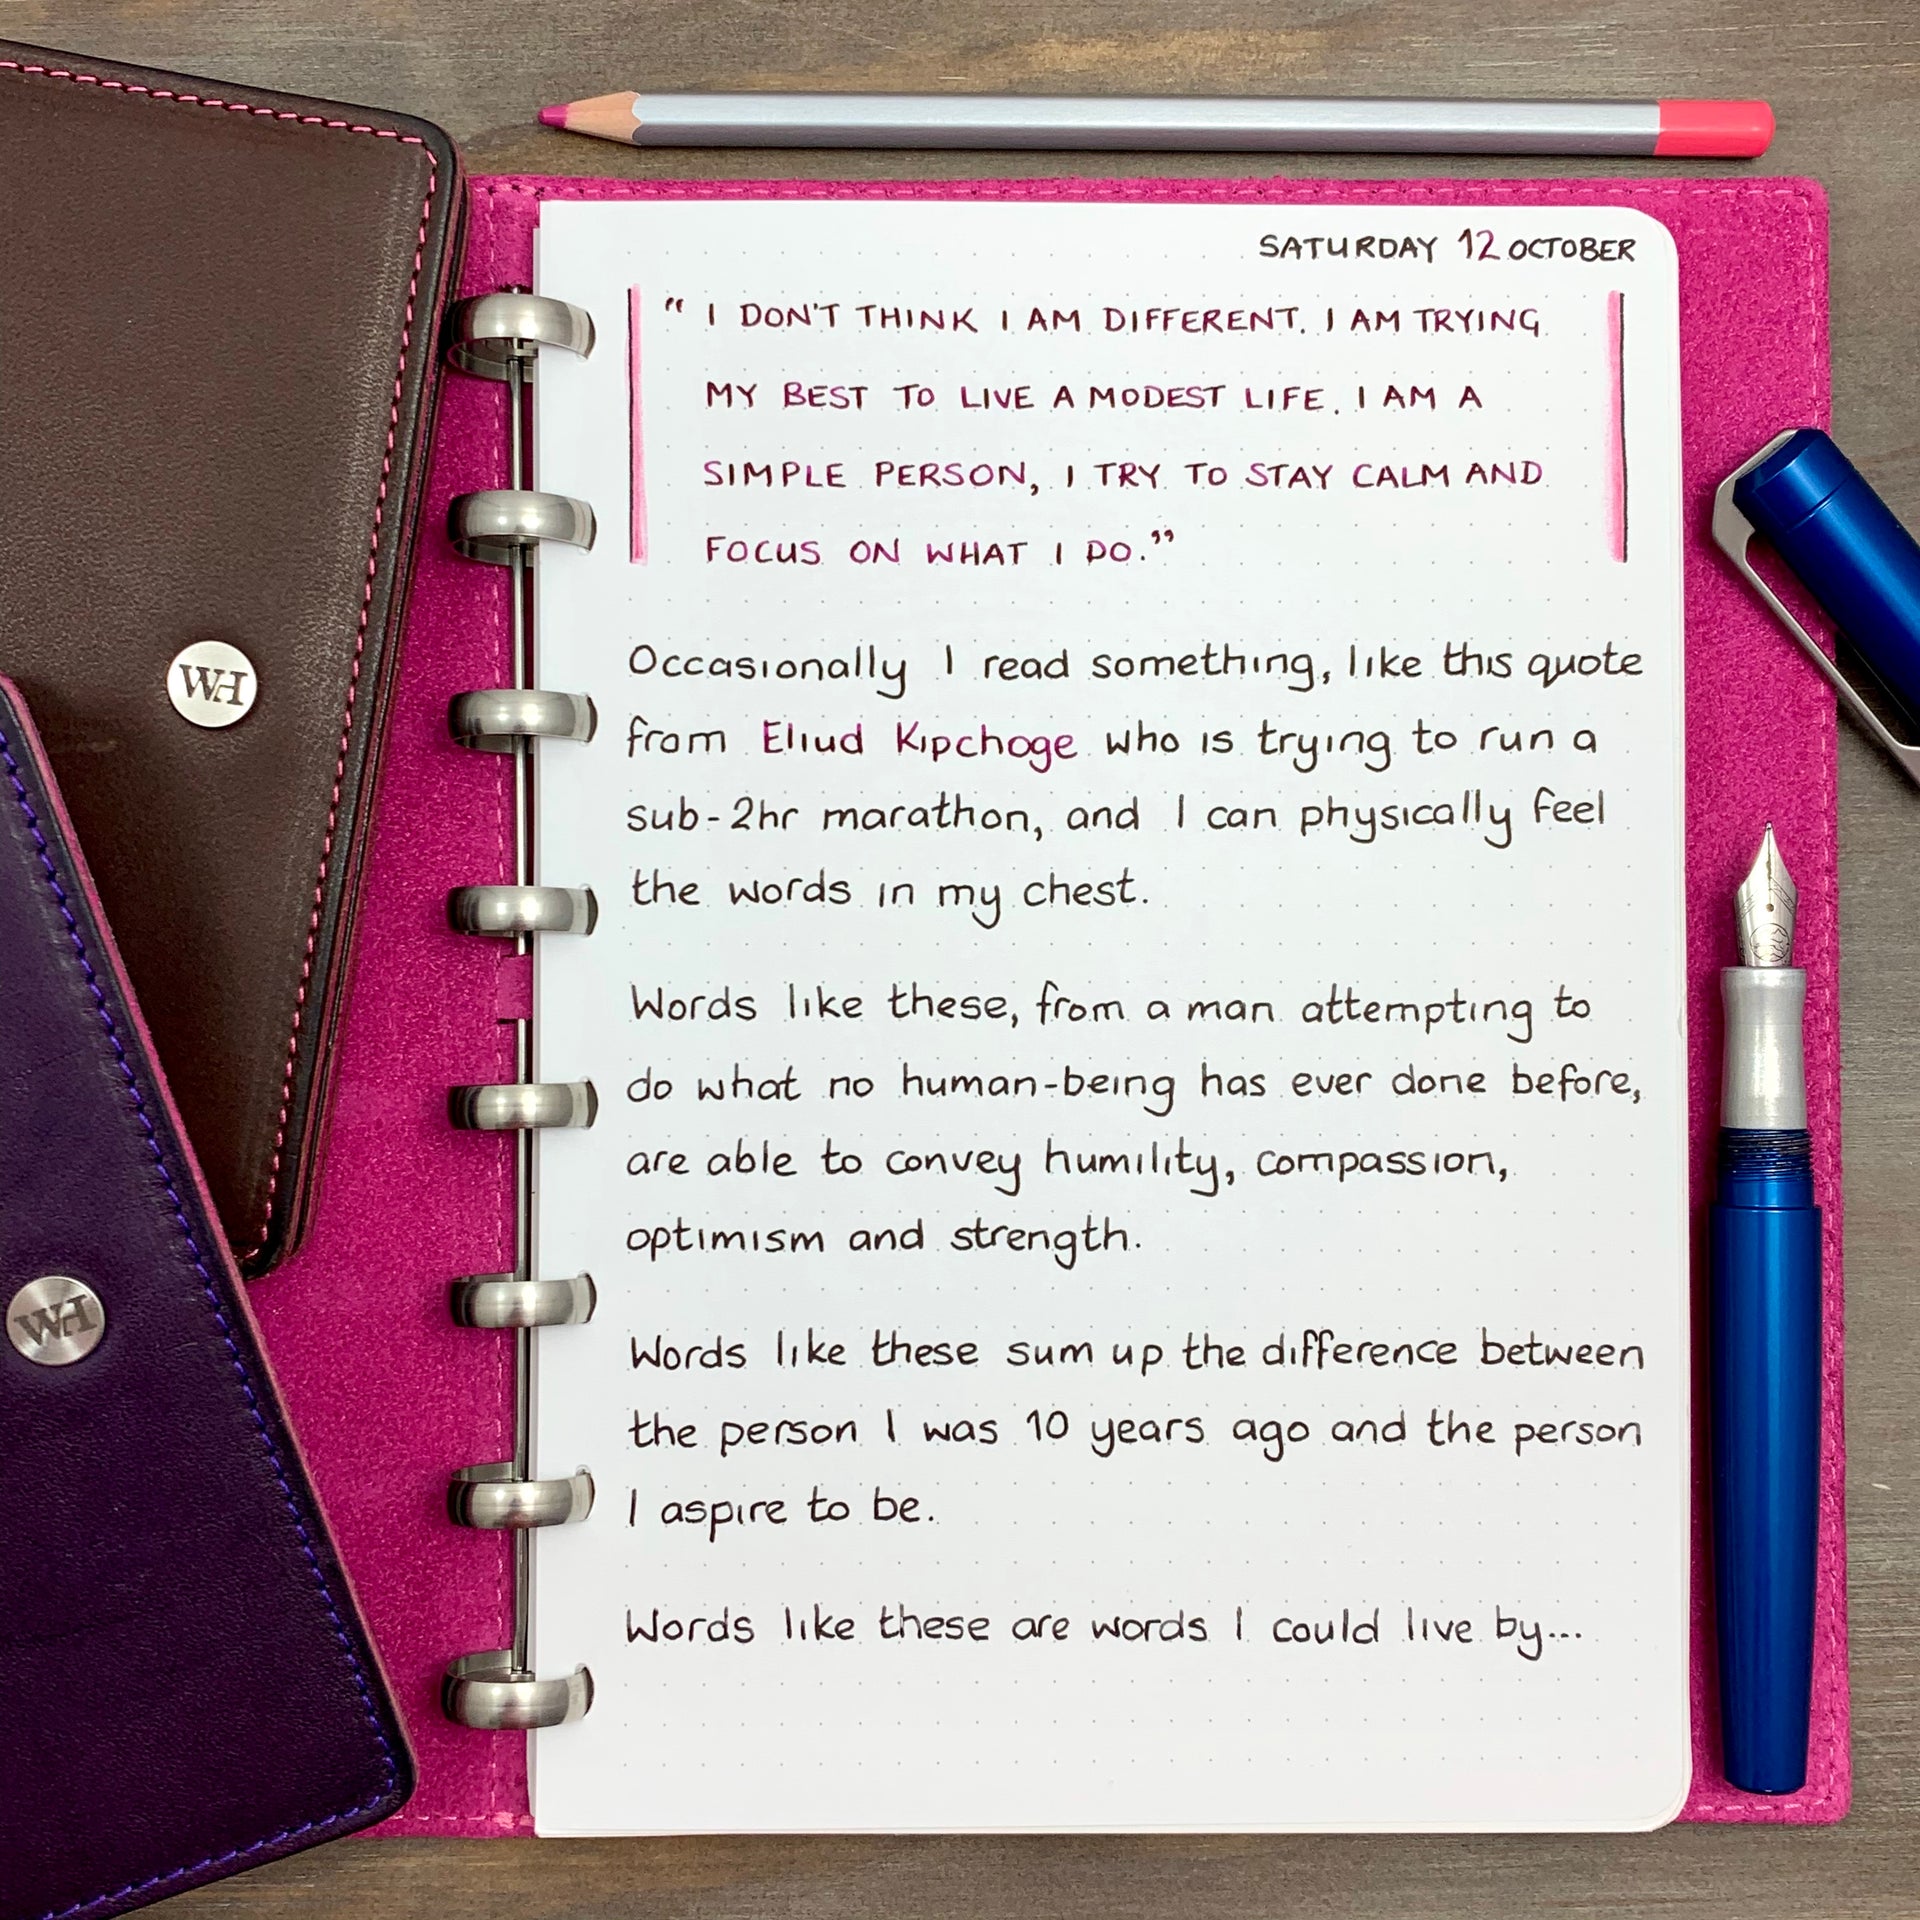 SATURDAY 12 OCTOBER
“ I DON'T THINK I AM DIFFERENT. I AM TRYING
MY BEST TO LIVE A MODEST LIFE. I AM A
SIMPLE PERSON, I TRY TO STAY CALM AND
FOCUS ON WHAT I DO.”
Occasionally I read something, like this quote
from Eliud Kipchoge who is trying to run a
sub-2hr marathon, and I can physically feel
the words in my chest.
Words like these, from a man attempting to
do what no human-being has ever done before,
are able to convey humility, compassion,
optimism and strength.
Words like these sum up the difference between
the person I was 10 years ago and the person
I aspire to be.
Words like these are words I could live by...
WH
WH